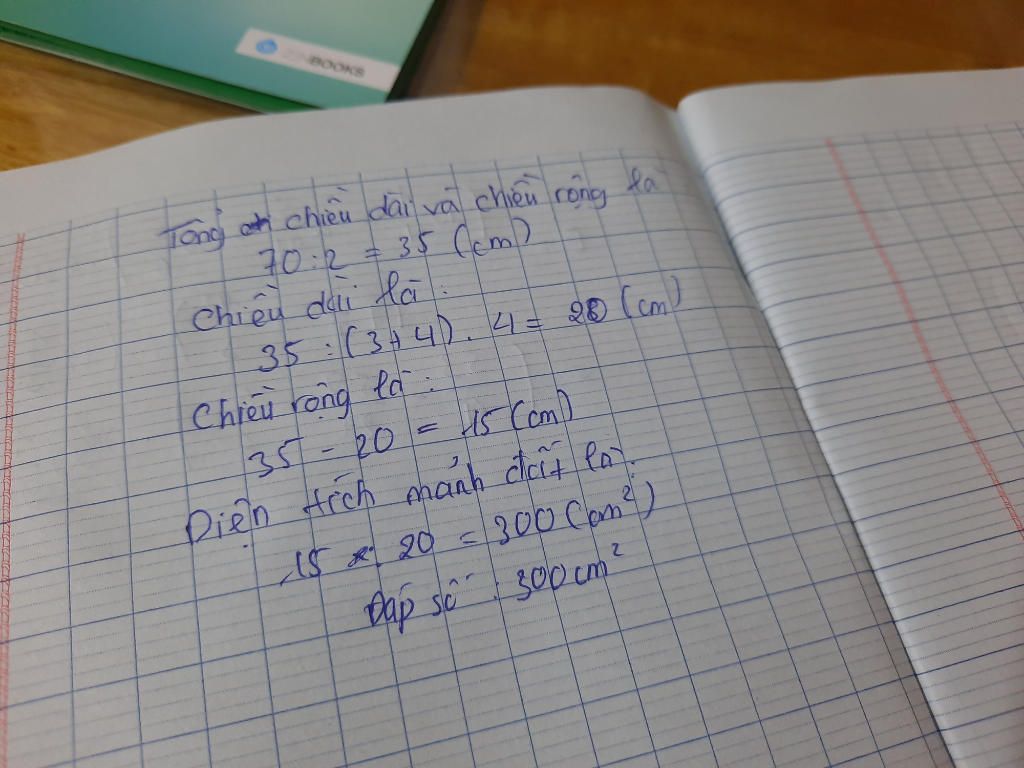 ZENBOOKS
Tổng chiều dài và chiều rộng là
70 : 2 = 35 (cm)
Chiều dài là :
35 : (3+4) . 4 = 20 (cm)
Chiều rộng là :
35 - 20 = 15 (cm)
Diện tích mảnh đất là:
15 . 20 = 300 (cm²)
Đáp số : 300 cm²